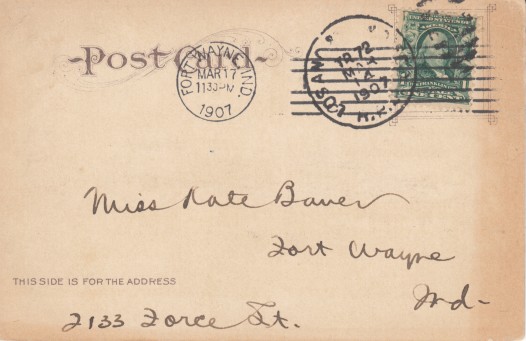 Post Card
FORT WAYNE, IND.
MAR 17
1130 PM
1907
TR 72
MAR
14
1907
R.P.O.
Miss Kate Bauer
Fort Wayne
THIS SIDE IS FOR THE ADDRESS
Ind-
2133 Force St.